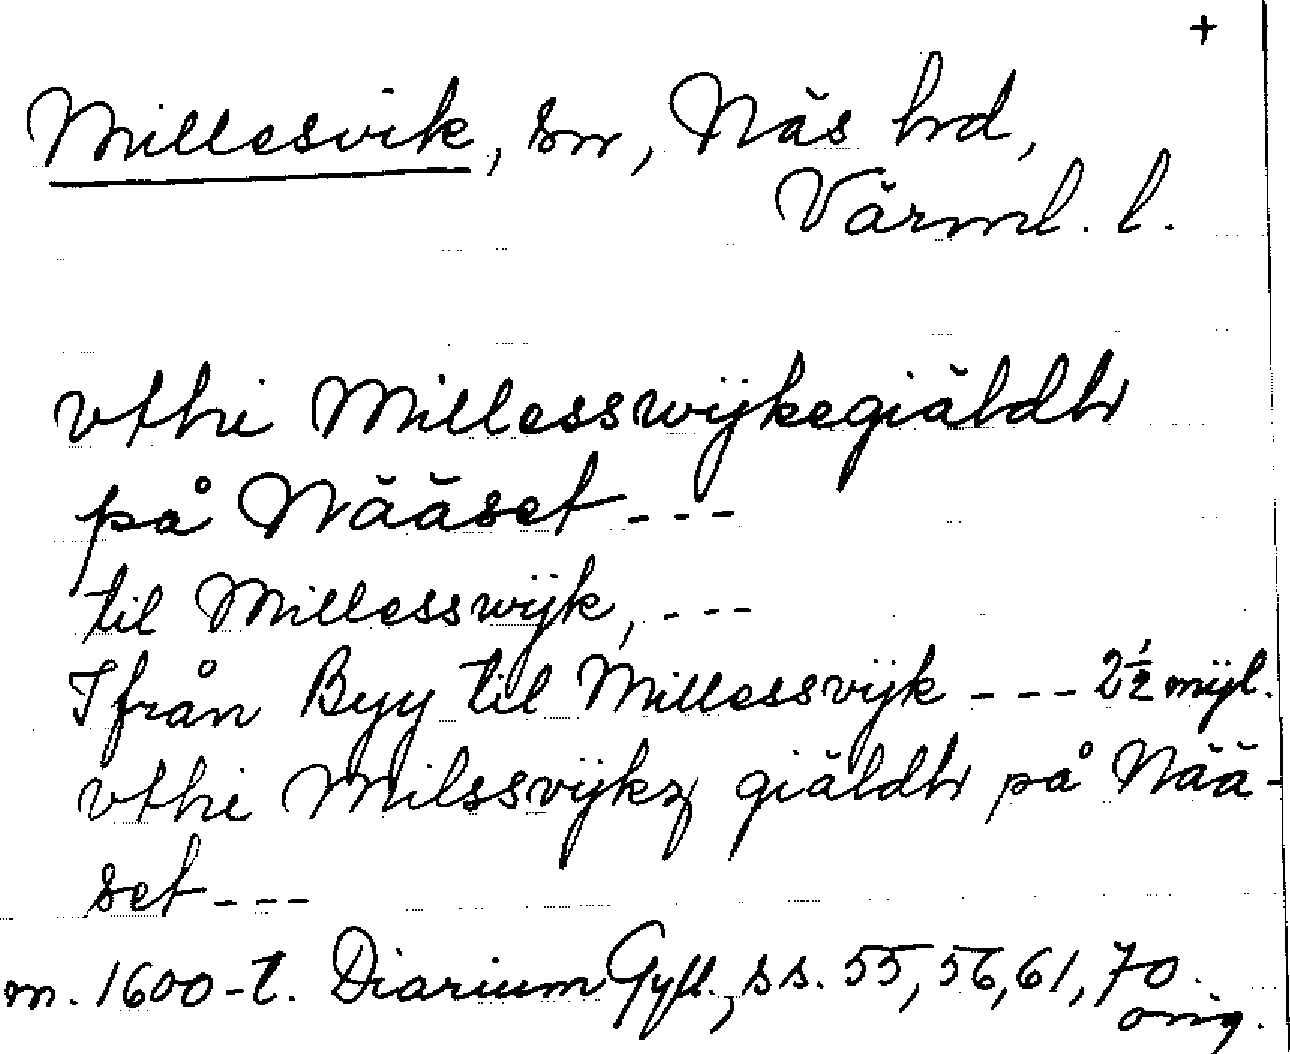 +
Millesvik, sn, Näs hrd,
Värml. l.
vthi Millesswijkegiäldh
på Nääset ---
til Millesswijk, ---
Ifrån Byy til Millessvijk --- 2½ mijl.
vthi Milssvijkz giäldh på Nää-
set ---
m. 1600-t. Diarium Gyll., ss. 55, 56, 61, 70.
orig.